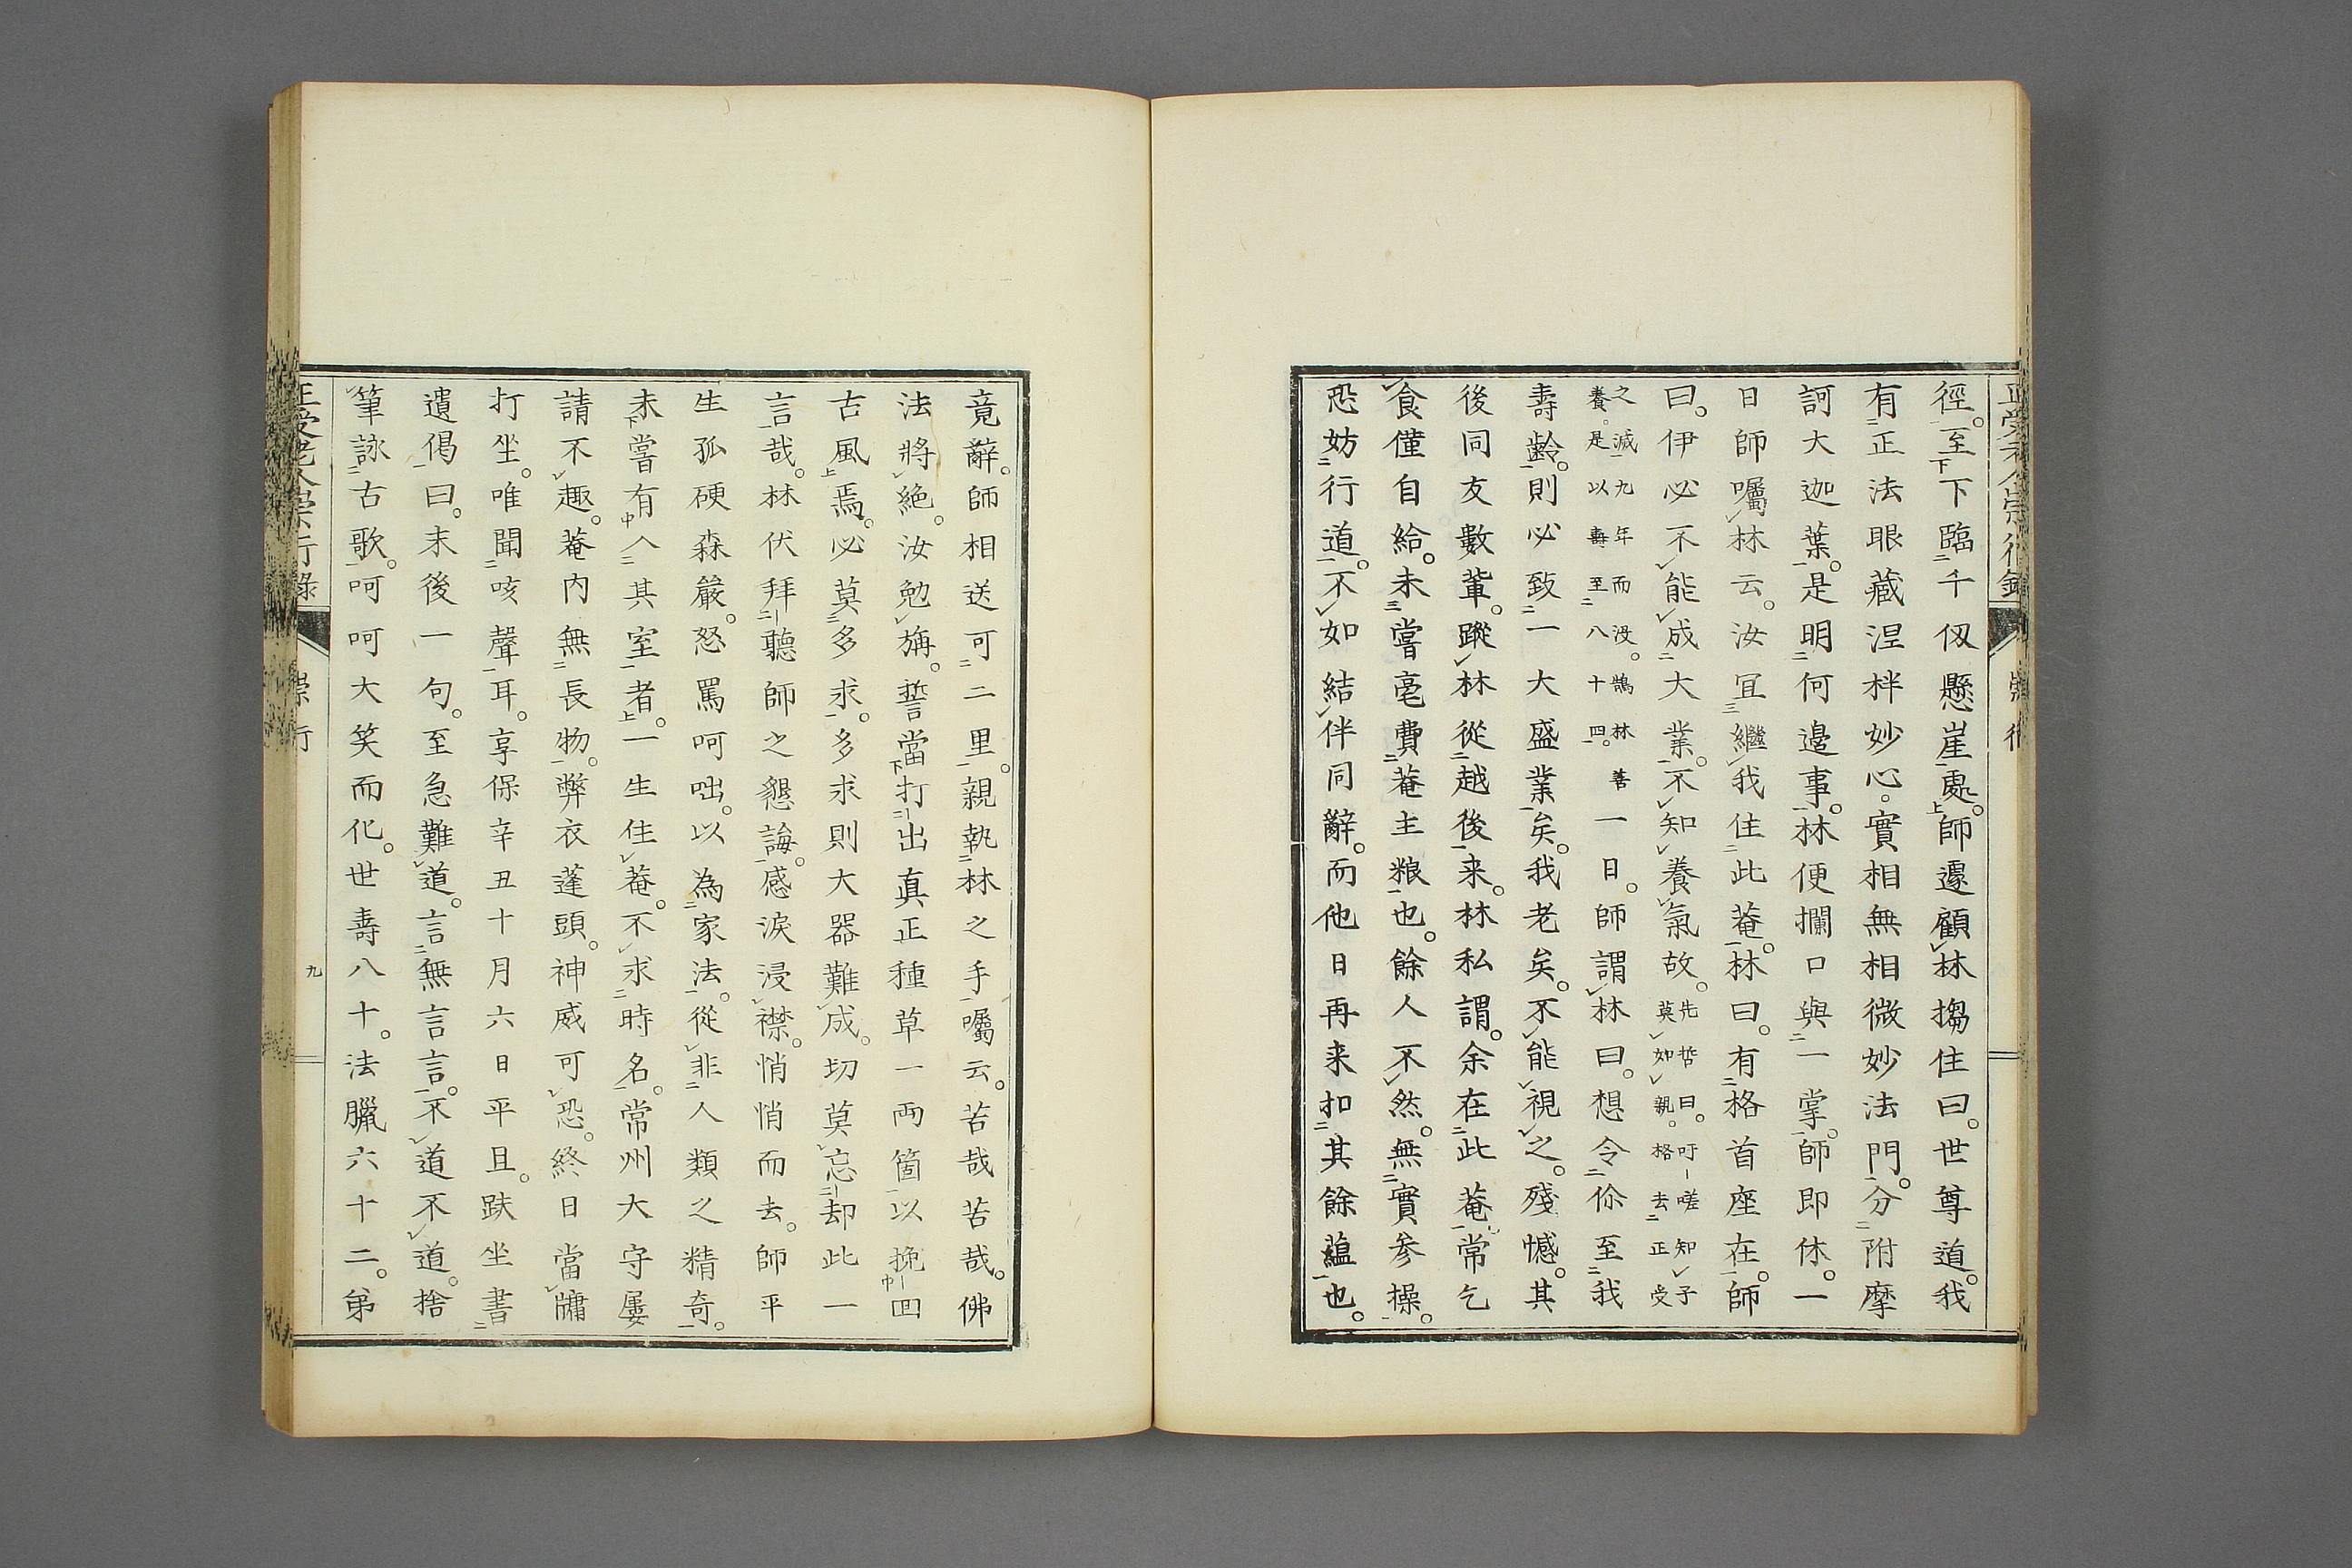 徑。至下臨千仭懸崖處。師遽顧林搊住曰。世尊道。我
有正法眼藏涅枠妙心。實相無相微妙法門。分附摩
訶大迦葉。是明何邊事。林便攔口與一掌。師即休。一
日師囑林云。汝冝繼我住此菴。林曰。有格首座在。師
曰。伊必不能成大業。不知養氣故。先哲曰。吁嗟知子莫如親。格去正受
之滅九年而没。鵠林善養。是以壽至八十四。一日。師謂林曰。想令伱至我
壽齡。則必致一大盛業矣。我老矣。不能視之。殘憾。其
後同友數軰。蹤林從越後来。林私謂。余在此菴。常乞
食僅自給。未嘗毫費菴主粮也。餘人不然。無實参操。
恐妨行道。不如結伴同辭。而他日再来扣其餘蘊也。
竟辭。師相送可二里。親執林之手囑云。苦哉苦哉。佛
法將絶。汝勉旃。誓當打出真正種草一兩箇以挽回
古風焉。必莫多求。多求則大器難成。切莫忘却此一
言哉。林伏拜聽師之懇誨。感淚浸襟。悄悄而去。師平
生孤硬森嚴。怒罵呵咄。以為家法。從非人類之精奇。
未嘗有入其室者。一生住菴。不求時名。常州大守屢
請不趣。菴内無長物。弊衣蓬頭。神威可恐。終日當牗
打坐。唯聞咳聲耳。享保辛丑十月六日平旦。趺坐書
遺偈曰。末後一句。至急難道。言無言言。不道不道。捨
筆詠古歌。呵呵大笑而化。世壽八十。法臘六十二。弟
正受老人崇行錄
崇行
九